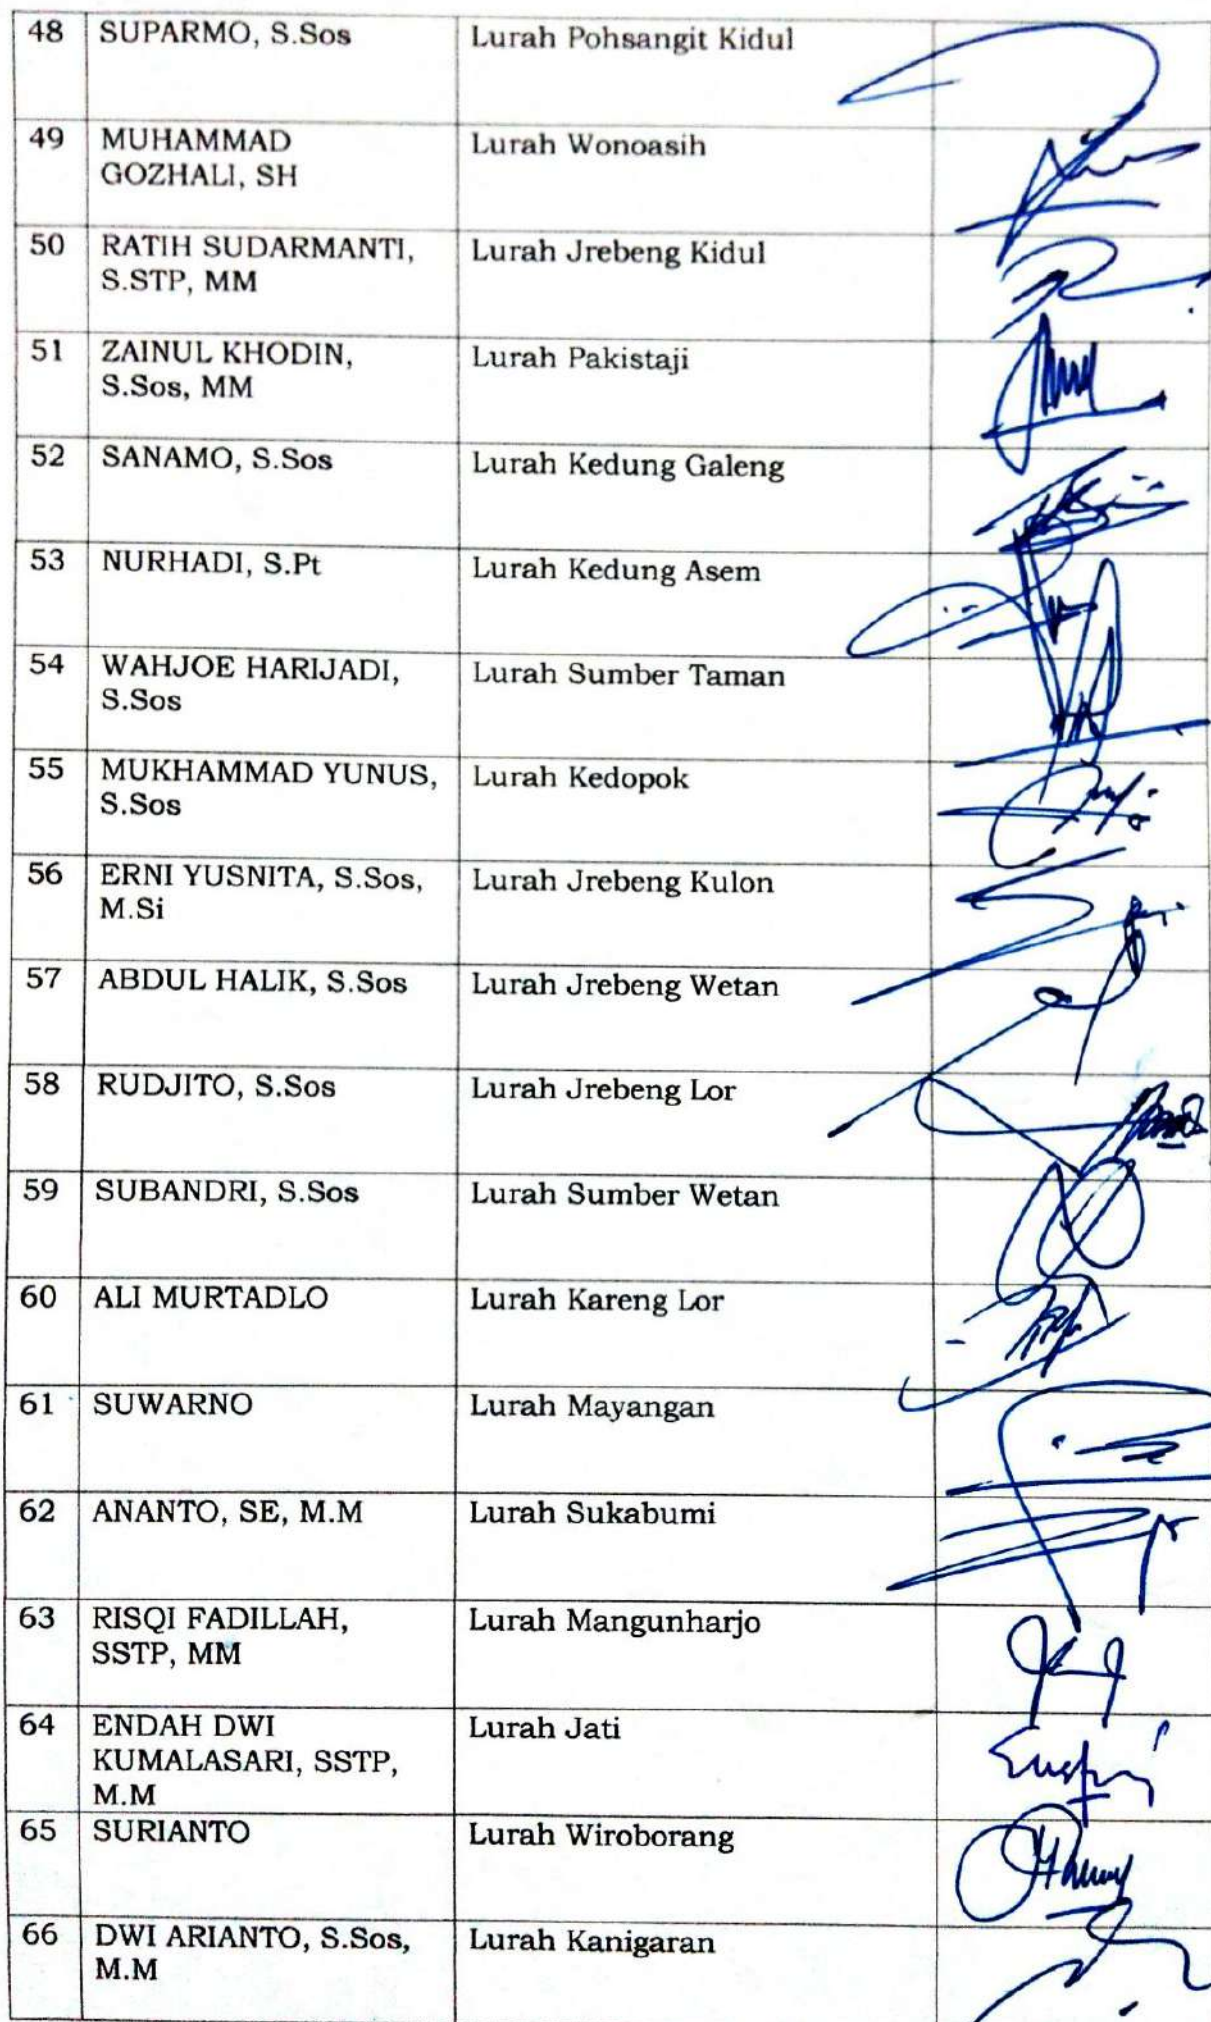 48 SUPARMO, S.Sos Lurah Pohsangit Kidul
49 MUHAMMAD Lurah Wonoasih
GOZHALI, SH
50 RATIH SUDARMANTI, Lurah Jrebeng Kidul
S.STP, MM
51 ZAINUL KHODIN, Lurah Pakistaji
S.Sos, MM
52 SANAMO, S.Sos Lurah Kedung Galeng
53 NURHADI, S.Pt Lurah Kedung Asem
54 WAHJOE HARIJADI, Lurah Sumber Taman
S.Sos
55 MUKHAMMAD YUNUS, Lurah Kedopok
S.Sos
56 ERNI YUSNITA, S.Sos, Lurah Jrebeng Kulon
M.Si
57 ABDUL HALIK, S.Sos Lurah Jrebeng Wetan
58 RUDJITO, S.Sos Lurah Jrebeng Lor
59 SUBANDRI, S.Sos Lurah Sumber Wetan
60 ALI MURTADLO Lurah Kareng Lor
61 SUWARNO Lurah Mayangan
62 ANANTO, SE, M.M Lurah Sukabumi
63 RISQI FADILLAH, Lurah Mangunharjo
SSTP, MM
64 ENDAH DWI Lurah Jati
KUMALASARI, SSTP,
M.M
65 SURIANTO Lurah Wiroborang
66 DWI ARIANTO, S.Sos, Lurah Kanigaran
M.M